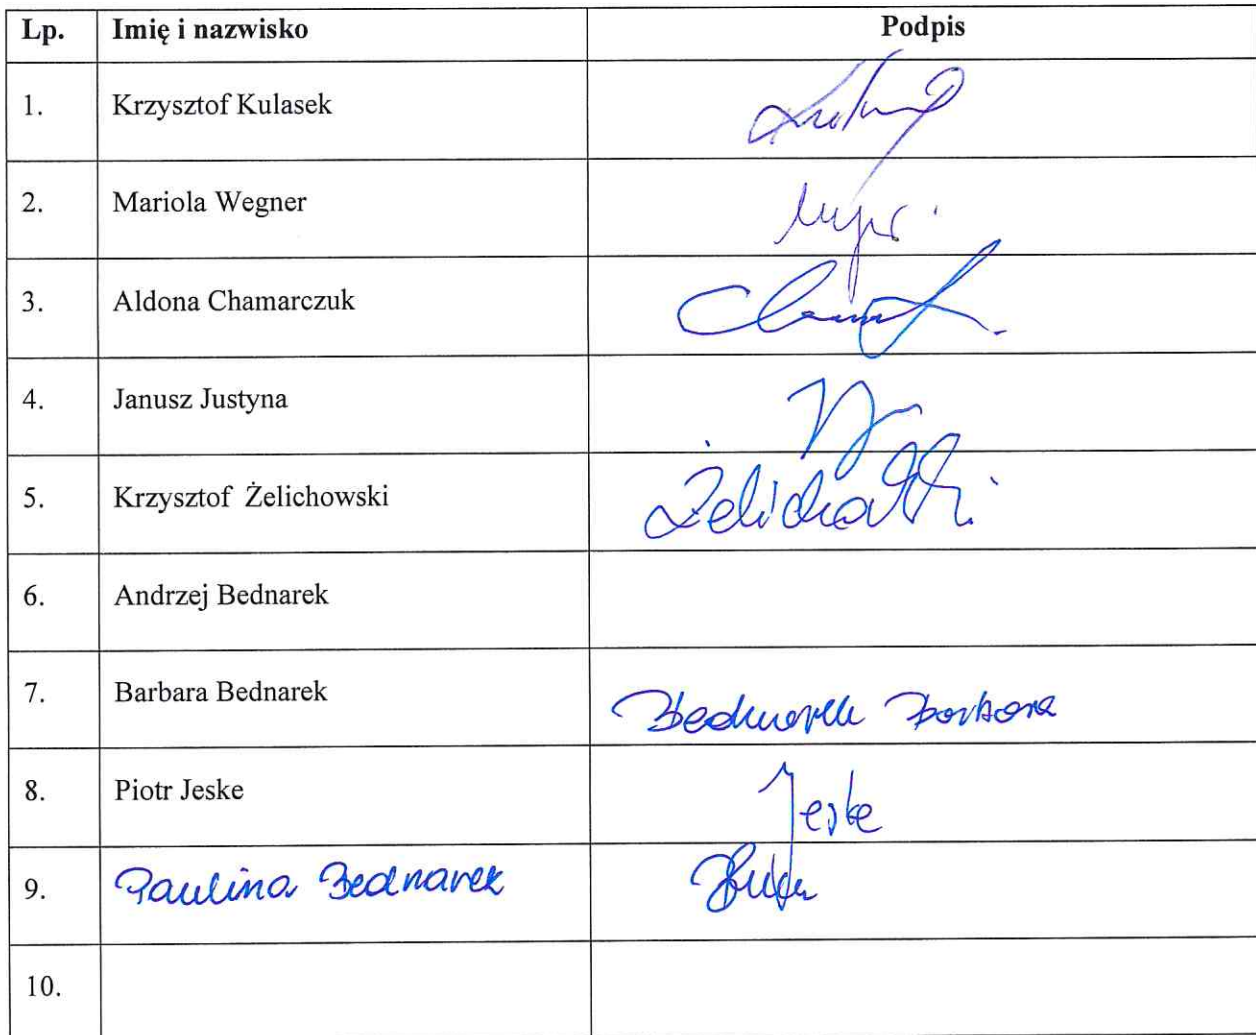 Lp. Imię i nazwisko Podpis
1. Krzysztof Kulasek
2. Mariola Wegner
3. Aldona Chamarczuk
4. Janusz Justyna
5. Krzysztof Żelichowski Żelichowski
6. Andrzej Bednarek
7. Barbara Bednarek Bednarek Barbara
8. Piotr Jeske Jeske
9. Paulina Bednarek
10.